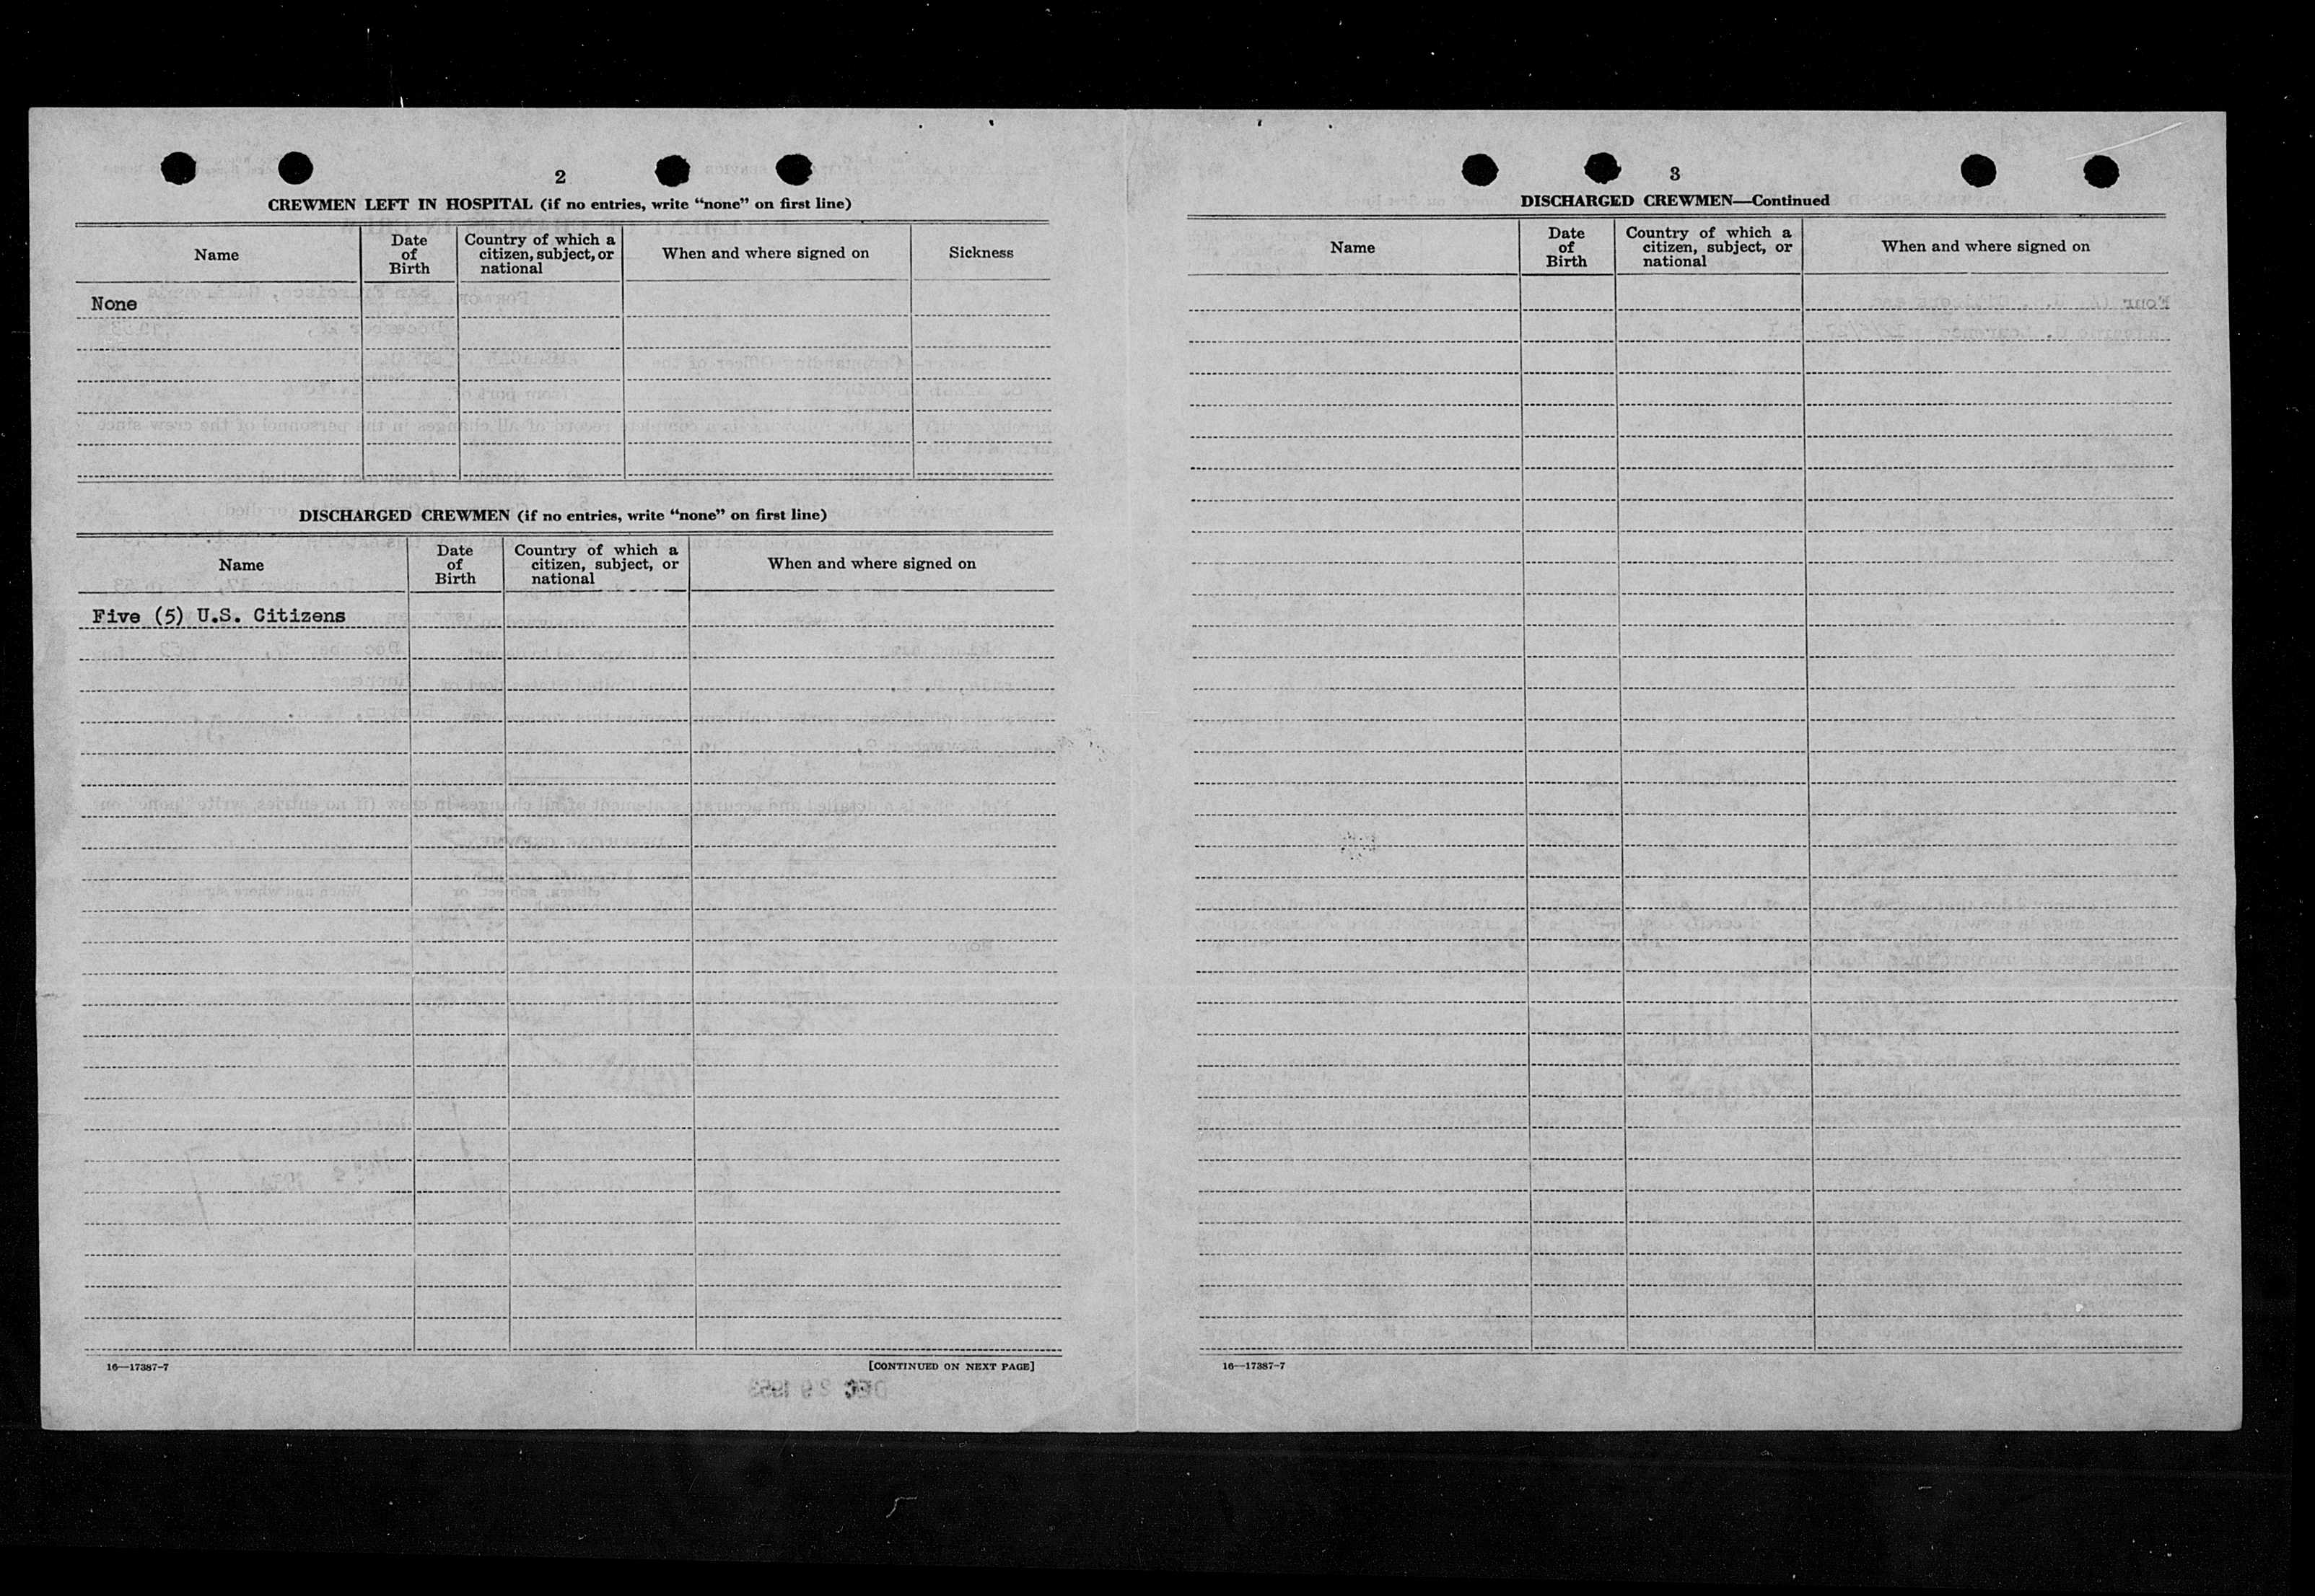 2
CREWMEN LEFT IN HOSPITAL (if no entries, write “none” on first line)
Name
Date of Birth
Country of which a citizen, subject, or national
When and where signed on
Sickness
None
DISCHARGED CREWMEN (if no entries, write “none” on first line)
Name
Date of Birth
Country of which a citizen, subject, or national
When and where signed on
Five (5) U.S. Citizens
16—17387-7
[CONTINUED ON NEXT PAGE]
DEC 29 1953
3
DISCHARGED CREWMEN—Continued
Name
Date of Birth
Country of which a citizen, subject, or national
When and where signed on
16—17387-7